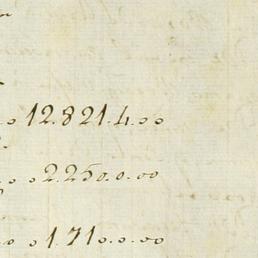 12.821.4.00
2.250.0.00
1.710.0.00